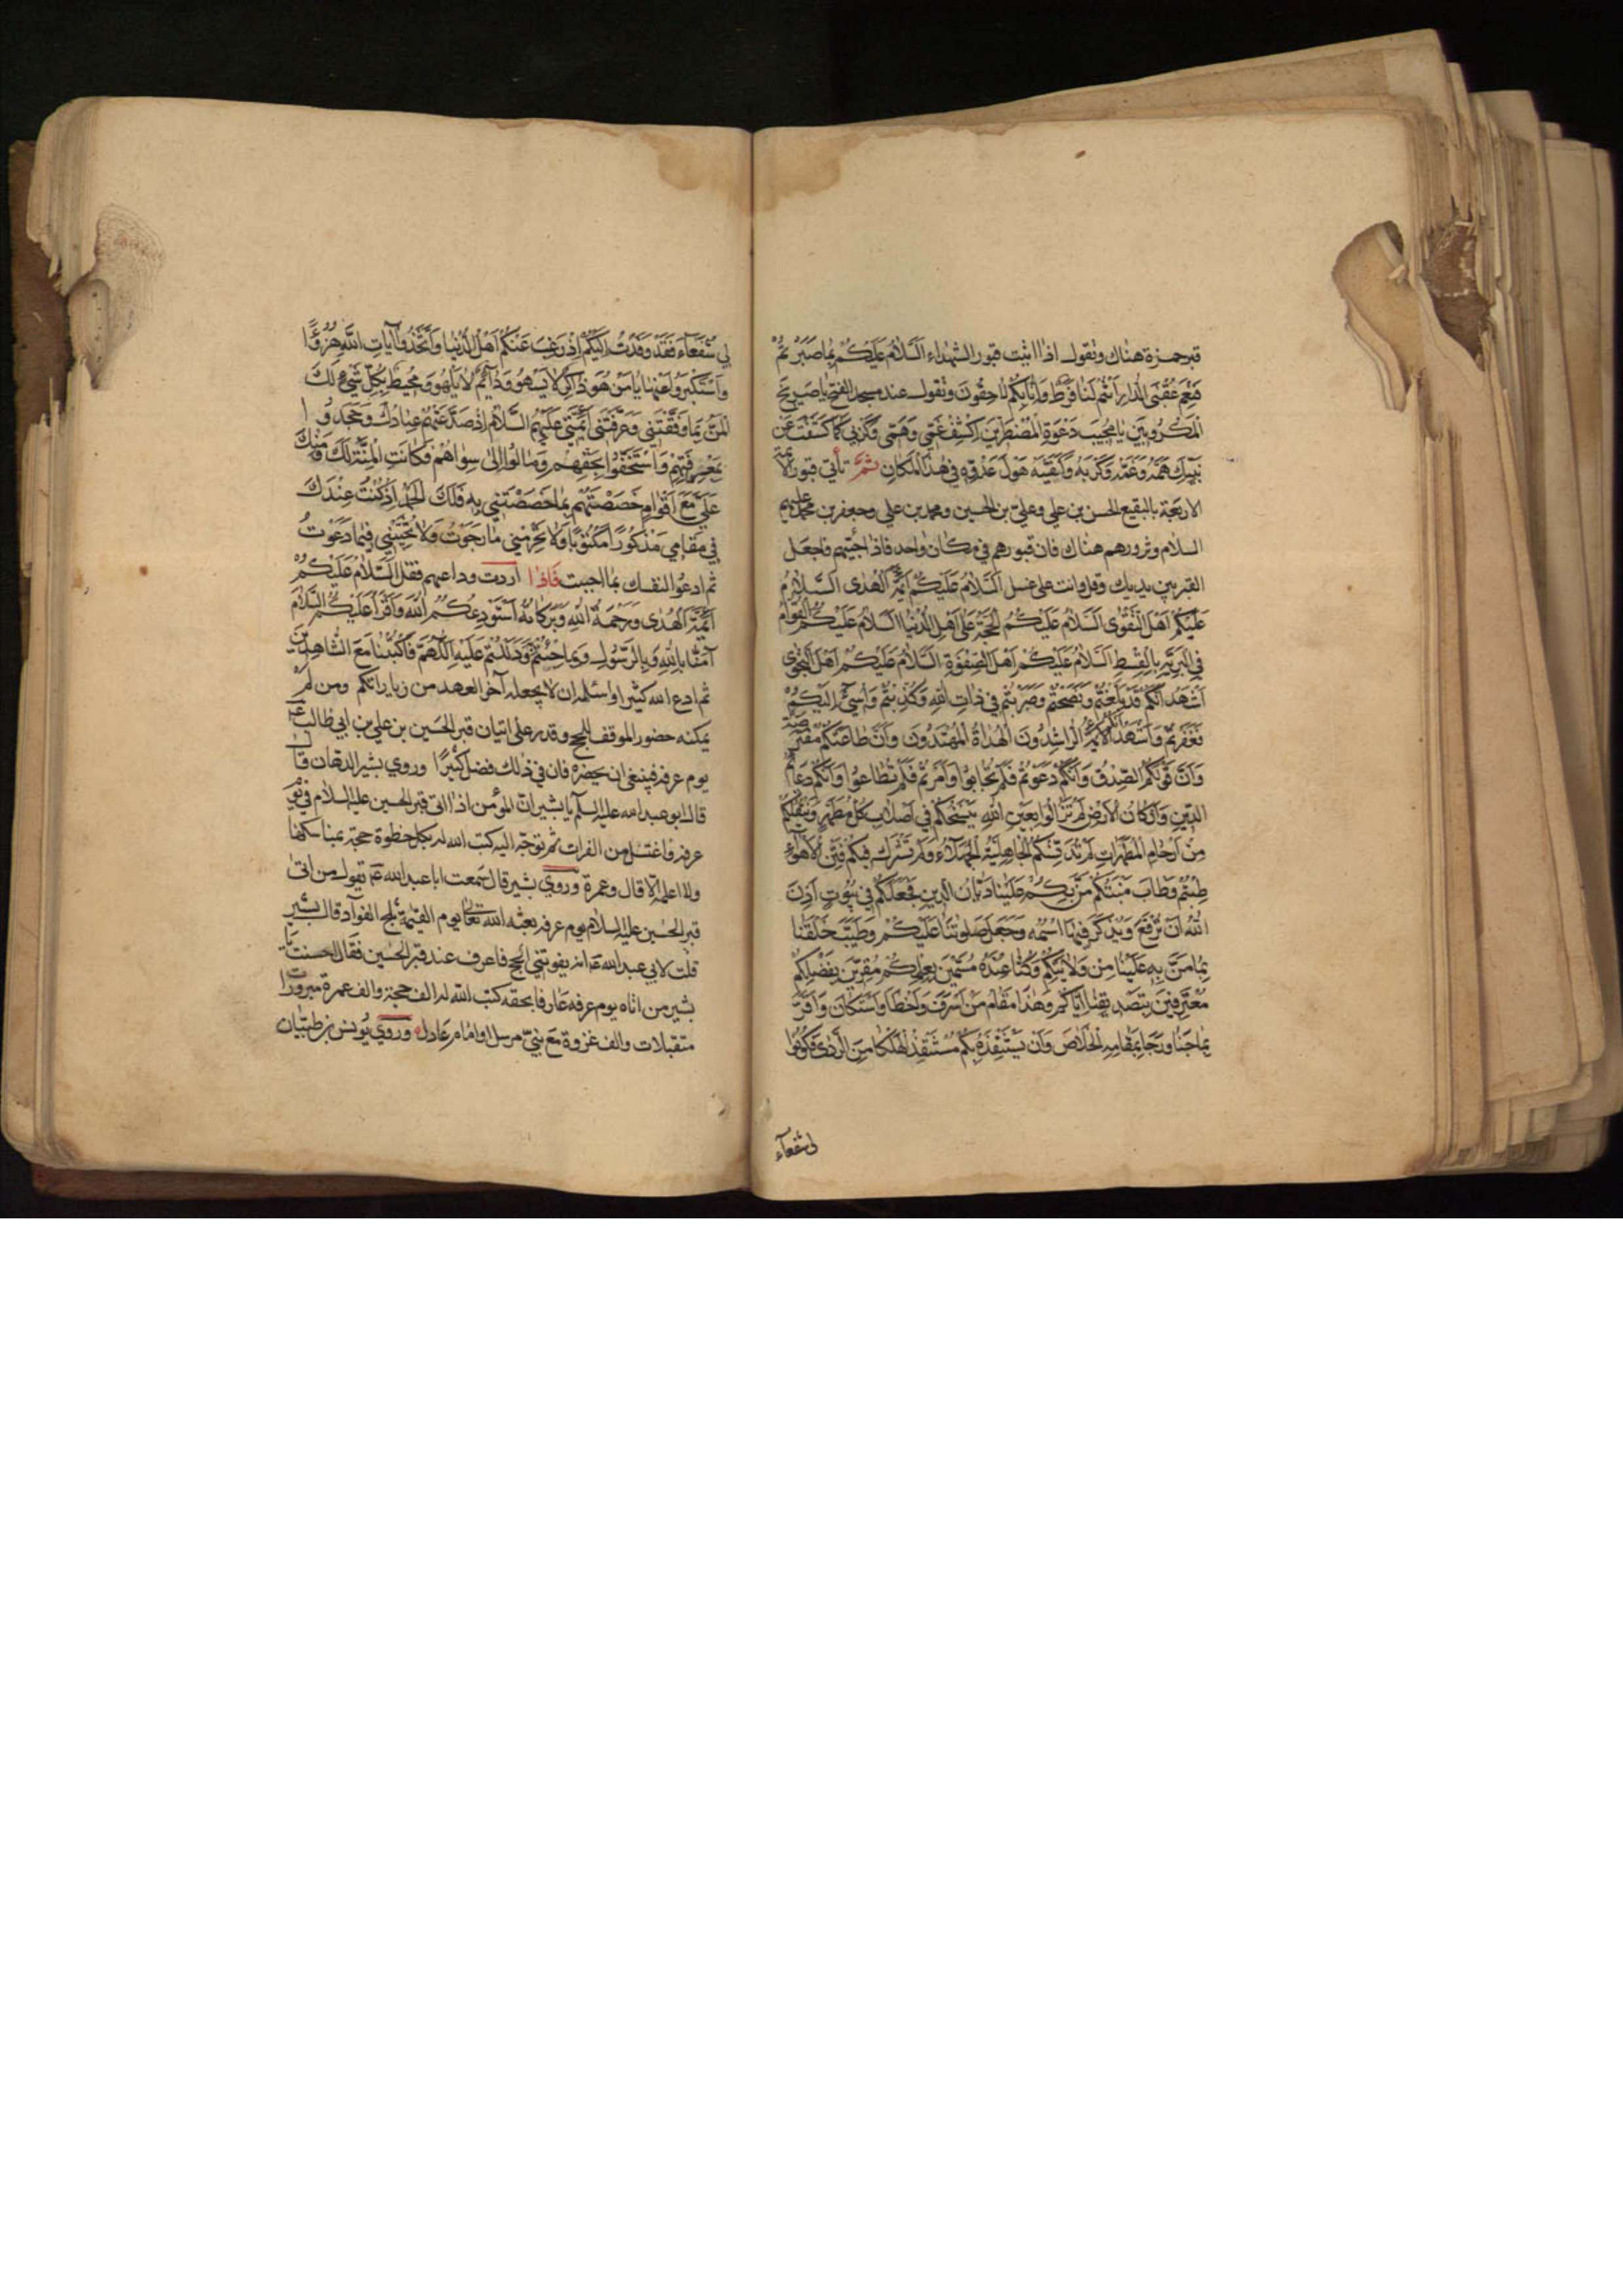 قبر حمزة هناك وتقول اذا اتيت قبور الشهداء السَّلَامُ عَلَيْكُمْ بِمَا صَبَرْتُمْ
فَنِعْمَ عُقْبَى الدَّارِ اَنْتُمْ لَنَا فَرَطٌ وَاِنَّا بِكُمْ لَاحِقُونَ وتقول عند مسجد الفتح يَا صَرِيخَ
الْمَكْرُوبِينَ يَا مُجِيبَ دَعْوَةِ الْمُضْطَرِّينَ اِكْشِفْ غَمِّي وَهَمِّي وَكَرْبِي كَمَا كَشَفْتَ عَنْ
نَبِيِّكَ هَمَّهُ وَغَمَّهُ وَكَرْبَهُ وَكَفَيْتَهُ هَوْلَ عَدُوِّهِ فِي هٰذَا الْمَكَانِ ثُمَّ تأتي قبور الائمة
الاربعة بالبقيع الحسن بن علي وعلي بن الحسين ومحمد بن علي وجعفر بن محمد عليهم
السلام وتزورهم هناك فان قبورهم في مكان واحد فاذا جئتهم فاجعل
القبر بين يديك وقل وانت على غسل اَلسَّلَامُ عَلَيْكُمْ اَئِمَّةَ الْهُدَى السَّلَامُ
عَلَيْكُمْ اَهْلَ التَّقْوَى اَلسَّلَامُ عَلَيْكُمُ الْحُجَّةَ عَلَى اَهْلِ الدُّنْيَا السَّلَامُ عَلَيْكُمُ الْقُوَّامَ
فِي الْبَرِيَّةِ بِالْقِسْطِ اَلسَّلَامُ عَلَيْكُمْ اَهْلَ الصِّفْوَةِ اَلسَّلَامُ عَلَيْكُمْ اَهْلَ النَّجْوَى
اَشْهَدُ اَنَّكُمْ قَدْ بَلَّغْتُمْ وَنَصَحْتُمْ وَصَبَرْتُمْ فِي ذَاتِ اللّٰهِ وَكُذِّبْتُمْ وَاُسِيءَ اِلَيْكُمْ
فَغَفَرْتُمْ وَاَشْهَدُ اَنَّكُمُ الْاَئِمَّةُ الرَّاشِدُونَ الْهُدَاةُ الْمُهْتَدُونَ وَاَنَّ طَاعَتَكُمْ مُفْتَرَضَةٌ
وَاَنَّ قَوْلَكُمُ الصِّدْقُ وَاَنَّكُمْ دَعَوْتُمْ فَلَمْ تُجَابُوا وَاَمَرْتُمْ فَلَمْ تُطَاعُوا وَاَنَّكُمْ دَعَائِمُ
الدِّينِ وَاَرْكَانُ الْاَرْضِ لَمْ تَزَالُوا بِعَيْنِ اللّٰهِ يَنْسَخُكُمْ فِي اَصْلَابِ كُلِّ مُطَهَّرٍ وَيَنْقُلُكُمْ
مِنْ اَرْحَامِ الْمُطَهَّرَاتِ لَمْ تُدَنِّسْكُمُ الْجَاهِلِيَّةُ الْجَهْلَاءُ وَلَمْ تَشْرَكْ فِيكُمْ فِتَنُ الْاَهْوَاءِ
طِبْتُمْ وَطَابَ مَنْبَتُكُمْ مَنَّ بِكُمْ عَلَيْنَا دَيَّانُ الدِّينِ فَجَعَلَكُمْ فِي بُيُوتٍ اَذِنَ
اللّٰهُ اَنْ تُرْفَعَ وَيُذْكَرَ فِيهَا اسْمُهُ وَجَعَلَ صَلَوٰتَنَا عَلَيْكُمْ وَطَيَّبَ خَلْقَنَا
بِمَا مَنَّ بِهِ عَلَيْنَا مِنْ وَلَايَتِكُمْ وَكُنَّا عِنْدَهُ مُسَمَّيْنَ بِعِلْمِكُمْ مُقِرِّينَ بِفَضْلِكُمْ
مُعْتَرِفِينَ بِتَصْدِيقِنَا اِيَّاكُمْ وَهٰذَا مَقَامُ مَنْ اَسْرَفَ وَاَخْطَأَ وَاسْتَكَانَ وَاَقَرَّ
بِمَا جَنَا وَرَجَا بِمَقَامِهِ الْخَلَاصَ وَاَنْ يَسْتَنْقِذَهُ بِكُمْ مُسْتَنْقِذُ الْهَلْكَا مِنَ الرَّدَى فَكُونُوا
لي شفعآء
لِي شُفَعَآءَ فَقَدْ وَفَدْتُ اِلَيْكُمْ اِذْ رَغِبَ عَنْكُمْ اَهْلُ الدُّنْيَا وَاتَّخَذُوا آيَاتِ اللّٰهِ هُزُوًا
وَاسْتَكْبَرُوا عَنْهَا يَا مَنْ هُوَ ذَاكِرٌ لَا يَسْهُو وَدَائِمٌ لَا يَلْهُو وَمُحِيطٌ بِكُلِّ شَيْءٍ لَكَ
الْمَنُّ بِمَا وَفَّقْتَنِي وَعَرَّفْتَنِي اَئِمَّتِي عَلَيْهِمُ السَّلَامُ اِذْ صَدَّ عَنْهُمْ عِبَادُكَ وَجَحَدُوا
مَعْرِفَتَهُمْ وَاسْتَخَفُّوا بِحَقِّهِمْ وَمَالُوا اِلَى سِوَاهُمْ فَكَانَتِ الْمِنَّةُ لَكَ وَمِنْكَ
عَلَيَّ مَعَ اَقْوَامٍ خَصَصْتَهُمْ بِمَا خَصَصْتَنِي بِهِ فَلَكَ الْحَمْدُ اِذْ كُنْتُ عِنْدَكَ
فِي مَقَامِي مَذْكُورًا مَكْتُوبًا وَلَا تَحْرِمْنِي مَا رَجَوْتُ وَلَا تُخَيِّبْنِي فِيمَا دَعَوْتُ
ثم ادعُ لنفسك بما احببت فَاذا اردت وداعهم فقل اَلسَّلَامُ عَلَيْكُمْ
اَئِمَّةَ الْهُدَى وَرَحْمَةُ اللّٰهِ وَبَرَكَاتُهُ اَسْتَوْدِعُكُمُ اللّٰهَ وَاَقْرَأُ عَلَيْكُمُ السَّلَامَ
آمَنَّا بِاللّٰهِ وَبِالرَّسُولِ وَبِمَا جِئْتُمْ وَدَلَلْتُمْ عَلَيْهِ اَللّٰهُمَّ فَاكْتُبْنَا مَعَ الشَّاهِدِينَ
ثم ادع الله كثيرا واسئله ان لا يجعله آخر العهد من زيارتكم ومن لَمْ
يمكنه حضور الموقف للحج وقدر على اتيان قبر الحُسَين بن علي بن ابي طالب ع
يوم عرفة فينبغي ان يحضره فان في ذلك فضل كثيرًا وروي بشير الدهان قال
قال ابو عبد الله عليه السلم يا بشير ان المؤمن اذا اتى قبر الحسين عليه السلام في يوم
عرفه فاغتسل من الفرات ثم توجّه اليه كتب الله له بكل خطوة حجة بمناسكها
ولا اعلمه الّا قال وعمرة وروي بشير قال سَمعت ابا عبد الله ع يقول من اتى
قبر الحُسين عليه السلام يوم عرفه بعثه الله تعالى يوم القيٰمة ثلج الفوآد قال بشير
قلت لابي عبد الله ع انه يفوتني الحج فاعرف عند قبر الحُسين فقال احسنت يا
بشير من اتاه يوم عرفه عَارفا بحقه كتب الله له الف حجة والف عمرة مبرورًا
متقبلات والف غزوة مَع نبيّ مرسل او امام عَادل وروي يونس بن ظبيان